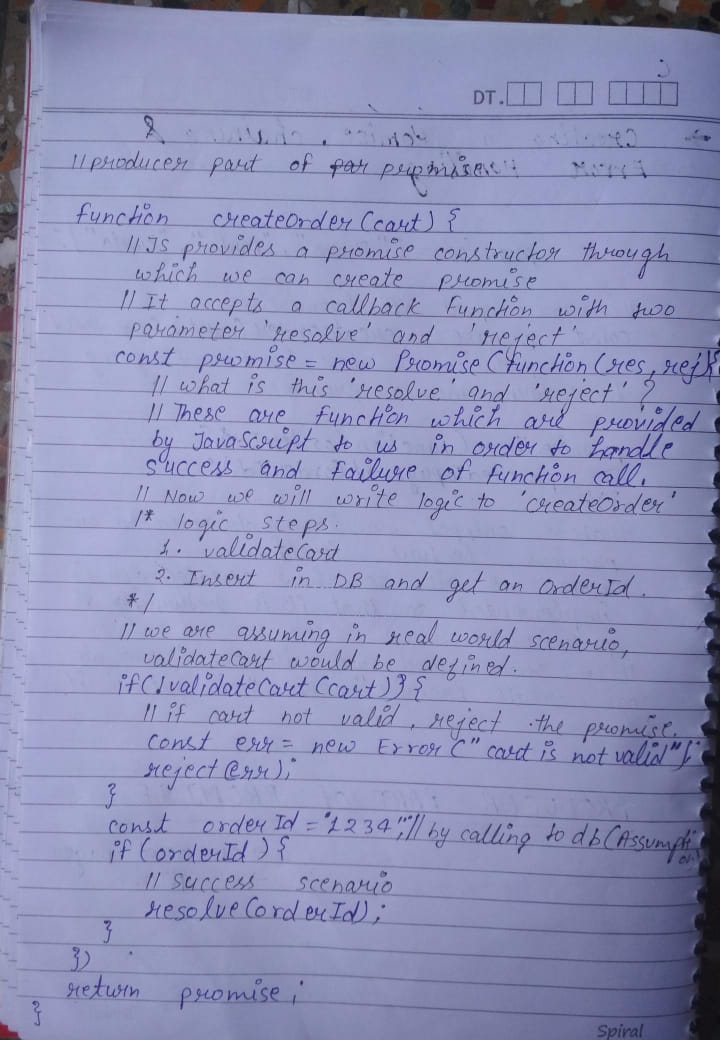 DT.
//producer part of promise.
function createOrder (cart) {
// JS provides a promise constructor through
which we can create promise
// It accepts a callback function with two
parameter 'resolve' and 'reject'
const promise = new Promise (function (res, rej) {
// what is this 'resolve' and 'reject' ?
// These are function which are provided
by JavaScript to us in order to handle
success and failure of function call.
// Now we will write logic to 'createOrder'
/* logic steps.
1. validateCart
2. Insert in DB and get an OrderId.
*/
// we are assuming in real world scenario,
validateCart would be defined.
if (!validateCart (cart)) {
// if cart not valid, reject the promise.
const err = new Error (" cart is not valid");
reject (err);
}
const orderId = "1234"; // by calling to db (Assumption)
if (orderId ) {
// success scenario
resolve (orderId);
}
})
return promise ;
}
Spiral